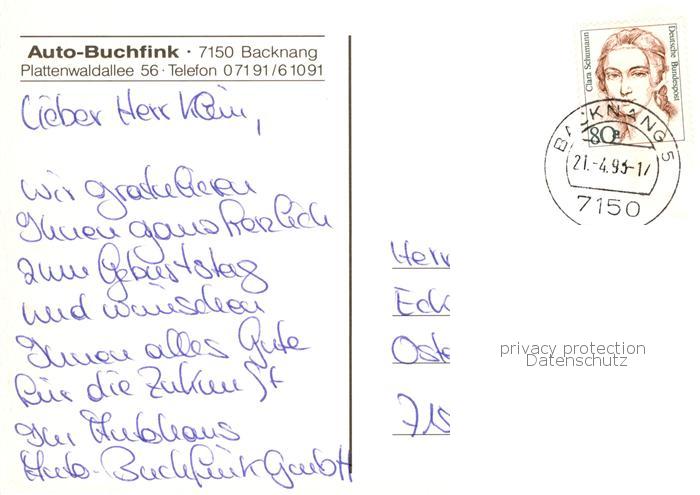 Auto-Buchfink · 7150 Backnang
Plattenwaldallee 56 · Telefon 0 71 91 / 6 10 91
Lieber Herr Klein,
wir gratulieren
Ihnen ganz herzlich
zum Geburtstag
und wünschen
Ihnen alles Gute
für die Zukunft
Ihr Autohaus
Auto-Buchfink GmbH
Clara Schumann
Deutsche Bundespost
80
BACKNANG 5
21.-4.93-17
7150
Herr
Eck
Oste
715
privacy protection
Datenschutz